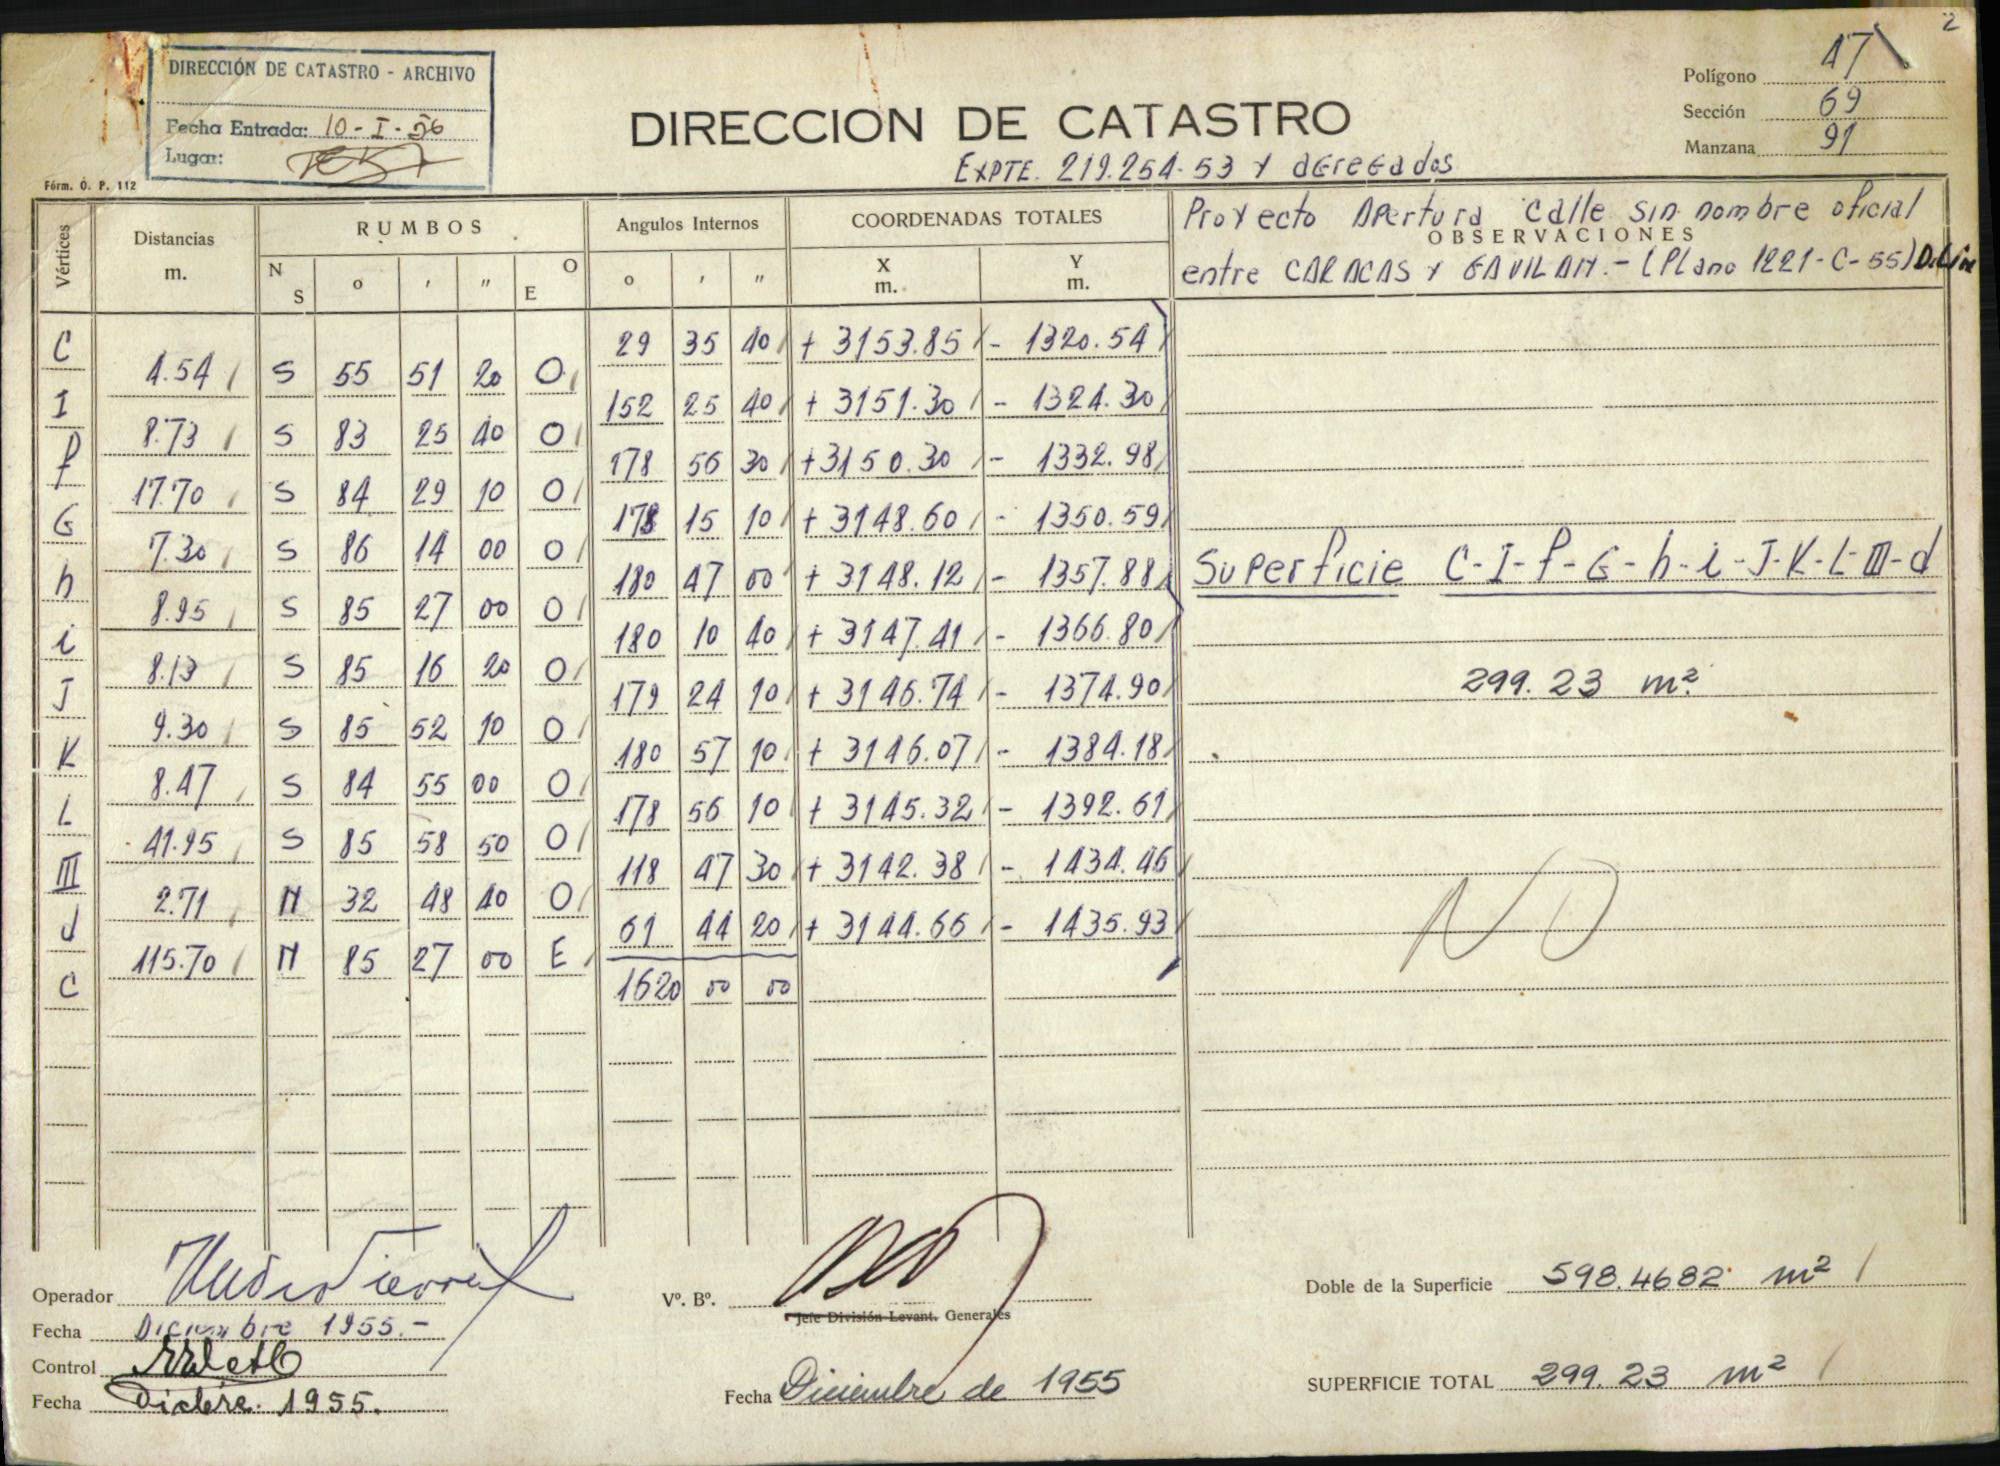 2
DIRECCIÓN DE CATASTRO - ARCHIVO
Fecha Entrada: 10-I-56
Lugar:
Fórm. O. P. 112
DIRECCION DE CATASTRO
EXPTE. 219.254-53 y agregados
Polígono 47
Sección 69
Manzana 91
Vértices Distancias m. RUMBOS N S o ' " O E Angulos Internos o ' " COORDENADAS TOTALES X m. Y m. OBSERVACIONES
Proyecto Apertura Calle sin nombre oficial
entre CARACAS y GAVILAN.- (Plano 1221-C-55)
C 29 35 40 + 3153.85 - 1320.54
4.54 S 55 51 20 O
I 152 25 40 + 3151.30 - 1324.30
8.73 S 83 25 40 O
f 178 56 30 + 3150.30 - 1332.98
17.70 S 84 29 10 O
G 178 15 10 + 3148.60 - 1350.59
7.30 S 86 14 00 O
h 180 47 00 + 3148.12 - 1357.88
8.95 S 85 27 00 O
i 180 10 40 + 3147.41 - 1366.80
8.13 S 85 16 20 O
J 179 24 10 + 3146.74 - 1374.90
9.30 S 85 52 10 O
K 180 57 10 + 3146.07 - 1384.18
8.47 S 84 55 00 O
L 178 56 10 + 3145.32 - 1392.61
41.95 S 85 58 50 O
III 118 47 30 + 3142.38 - 1434.46
2.71 N 32 48 40 O
d 61 44 20 + 3144.66 - 1435.93
115.70 N 85 27 00 E
C 1620 00 00
Superficie C-I-f-G-h-i-J-K-L-III-d
299.23 m²
Operador
Fecha Diciembre 1955.-
Control
Fecha Dicbre. 1955.
Vº. Bº.
Jefe División Levant. Generales
Fecha Diciembre de 1955
Doble de la Superficie 598.4682 m²
SUPERFICIE TOTAL 299.23 m²